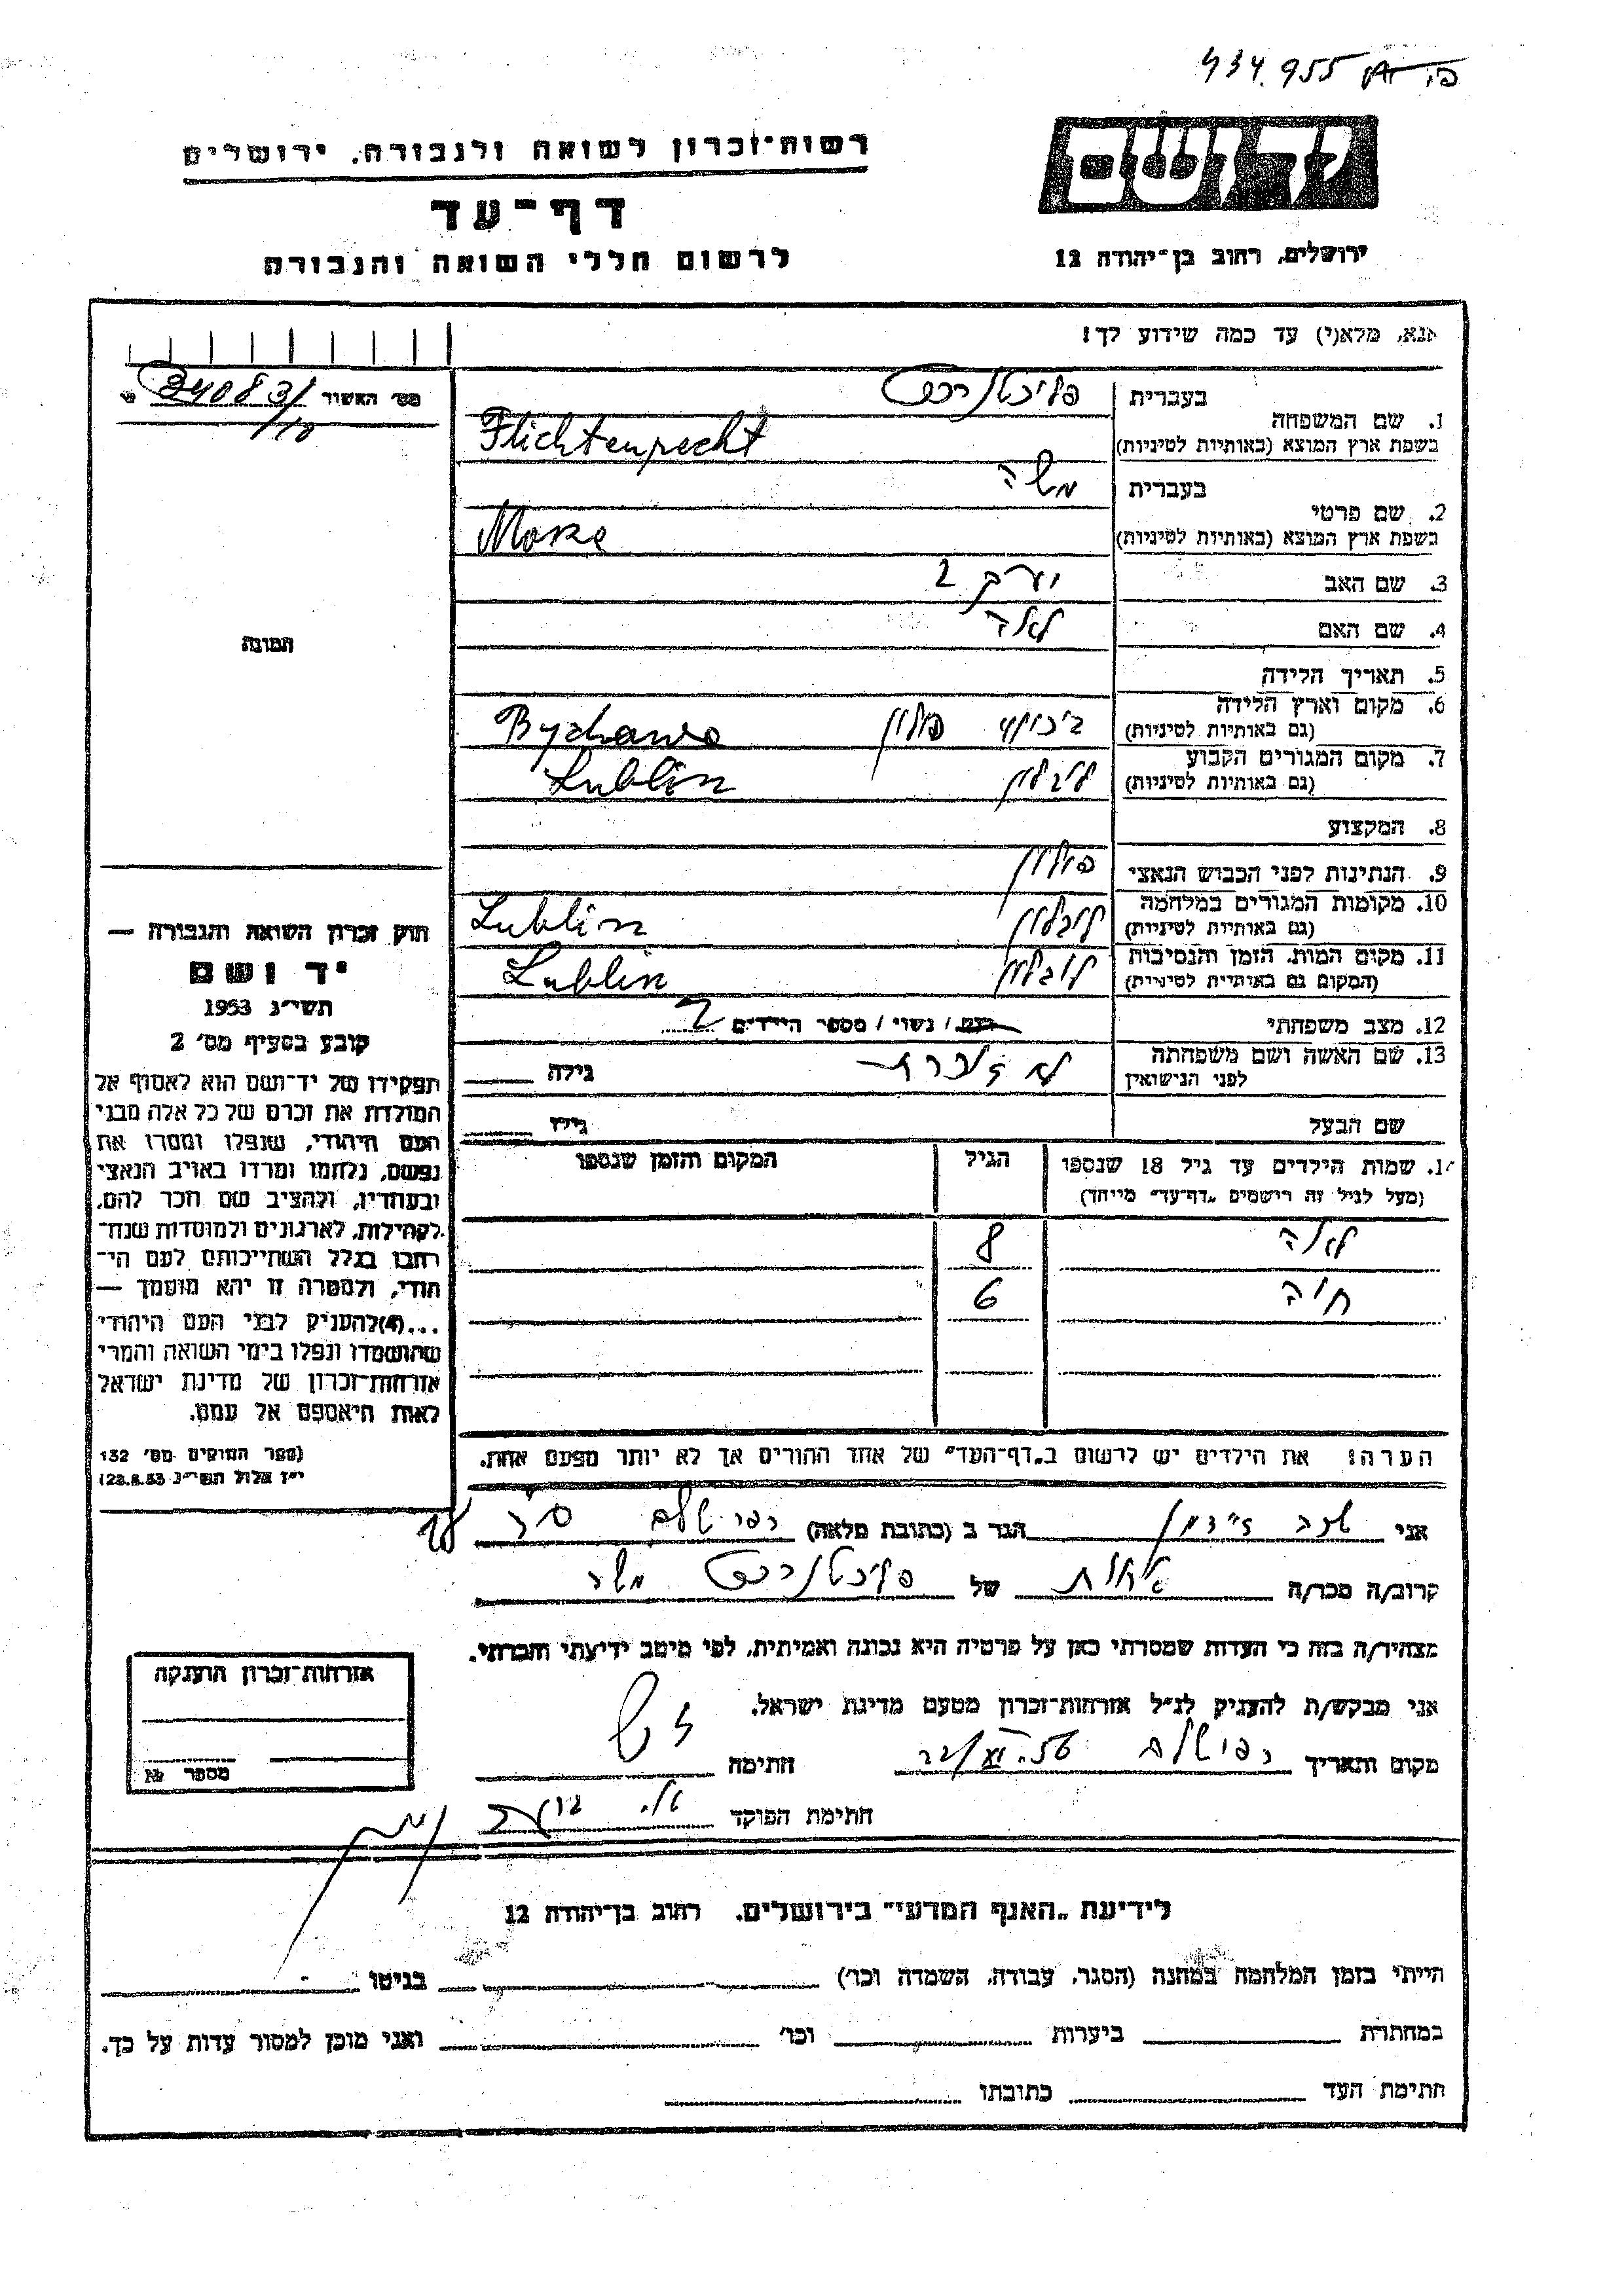 434.955
רשות־זכרון לשואה ולגבורה. ירושלים
דף־עד
לרשום חללי השואה והגבורה
יד ושם
ירושלים, רחוב בן־יהודה 12
אנא, מלא(י) עד כמה שידוע לך!
מס׳ האשור 34083/
1. שם המשפחה
בעברית פליכטנרכט
בשפת ארץ המוצא (באותיות לטיניות) Flichtenrecht
2. שם פרטי
בעברית משה
בשפת ארץ המוצא (באותיות לטיניות)
3. שם האב יעקב
4. שם האם לאה
5. תאריך הלידה
6. מקום וארץ הלידה
(גם באותיות לטיניות) פולין Bychawa
7. מקום המגורים הקבוע
(גם באותיות לטיניות) לובלין Lublin
8. המקצוע
9. הנתינות לפני הכבוש הנאצי פולין
10. מקומות המגורים במלחמה
(גם באותיות לטיניות) לובלין Lublin
11. מקום המות, הזמן והנסיבות
(המקום גם באותיות לטיניות) לובלין Lublin
12. מצב משפחתי רווק / נשוי / מספר הילדים 2
13. שם האשה ושם משפחתה
לפני הנישואין לא זוכרת גילה
שם הבעל גילו
14. שמות הילדים עד גיל 18 שנספו
(מעל לגיל זה רישמים „דף־עד” מייחד)
הגיל
המקום והזמן שנספו
לאה 8
חוה 6
הערה: את הילדים יש לרשום ב„דף־העד” של אחד ההורים אך לא יותר מפעם אחת.
תמונה
חוק זכרון השואה והגבורה —
יד ושם
תשי״ג 1953
קובע בסעיף מס׳ 2
תפקידו של יד־ושם הוא לאסוף אל
המולדת את זכרם של כל אלה מבני
העם היהודי, שנפלו ומסרו את
נפשם, נלחמו ומרדו באויב הנאצי
ובעוזריו, ולהציב שם וזכר להם,
לקהילות, לארגונים ולמוסדות שנח־
רבו בגלל השתייכותם לעם הי־
הודי, ולמטרה זו יהא מוסמך —
...(4)להעניק לבני העם היהודי
שהושמדו ונפלו בימי השואה והמרי
אזרחות־זכרון של מדינת ישראל
לאות היאספם אל עמם.
(ספר החוקים מס׳ 132
י״ז אלול תשי״ג 28.8.53)
אני הגר ב (כתובת מלאה)
קרוב/ה מכר/ה של פליכטנרכט משה
מצהיר/ה בזה כי העדות שמסרתי כאן על פרטיה היא נכונה ואמיתית, לפי מיטב ידיעתי והכרתי.
אני מבקש/ת להעניק לנ״ל אזרחות־זכרון מטעם מדינת ישראל.
מקום ותאריך חתימה
חתימת הפוקד
אזרחות־זכרון הוענקה
מספר №
לידיעת „האגף המדעי” בירושלים. רחוב בן־יהודה 12
הייתי בזמן המלחמה במחנה (הסגר, עבודה, השמדה וכו׳) בגיטו
במחתרת ביערות וכו׳ ואני מוכן למסור עדות על כך.
חתימת העד כתובתו